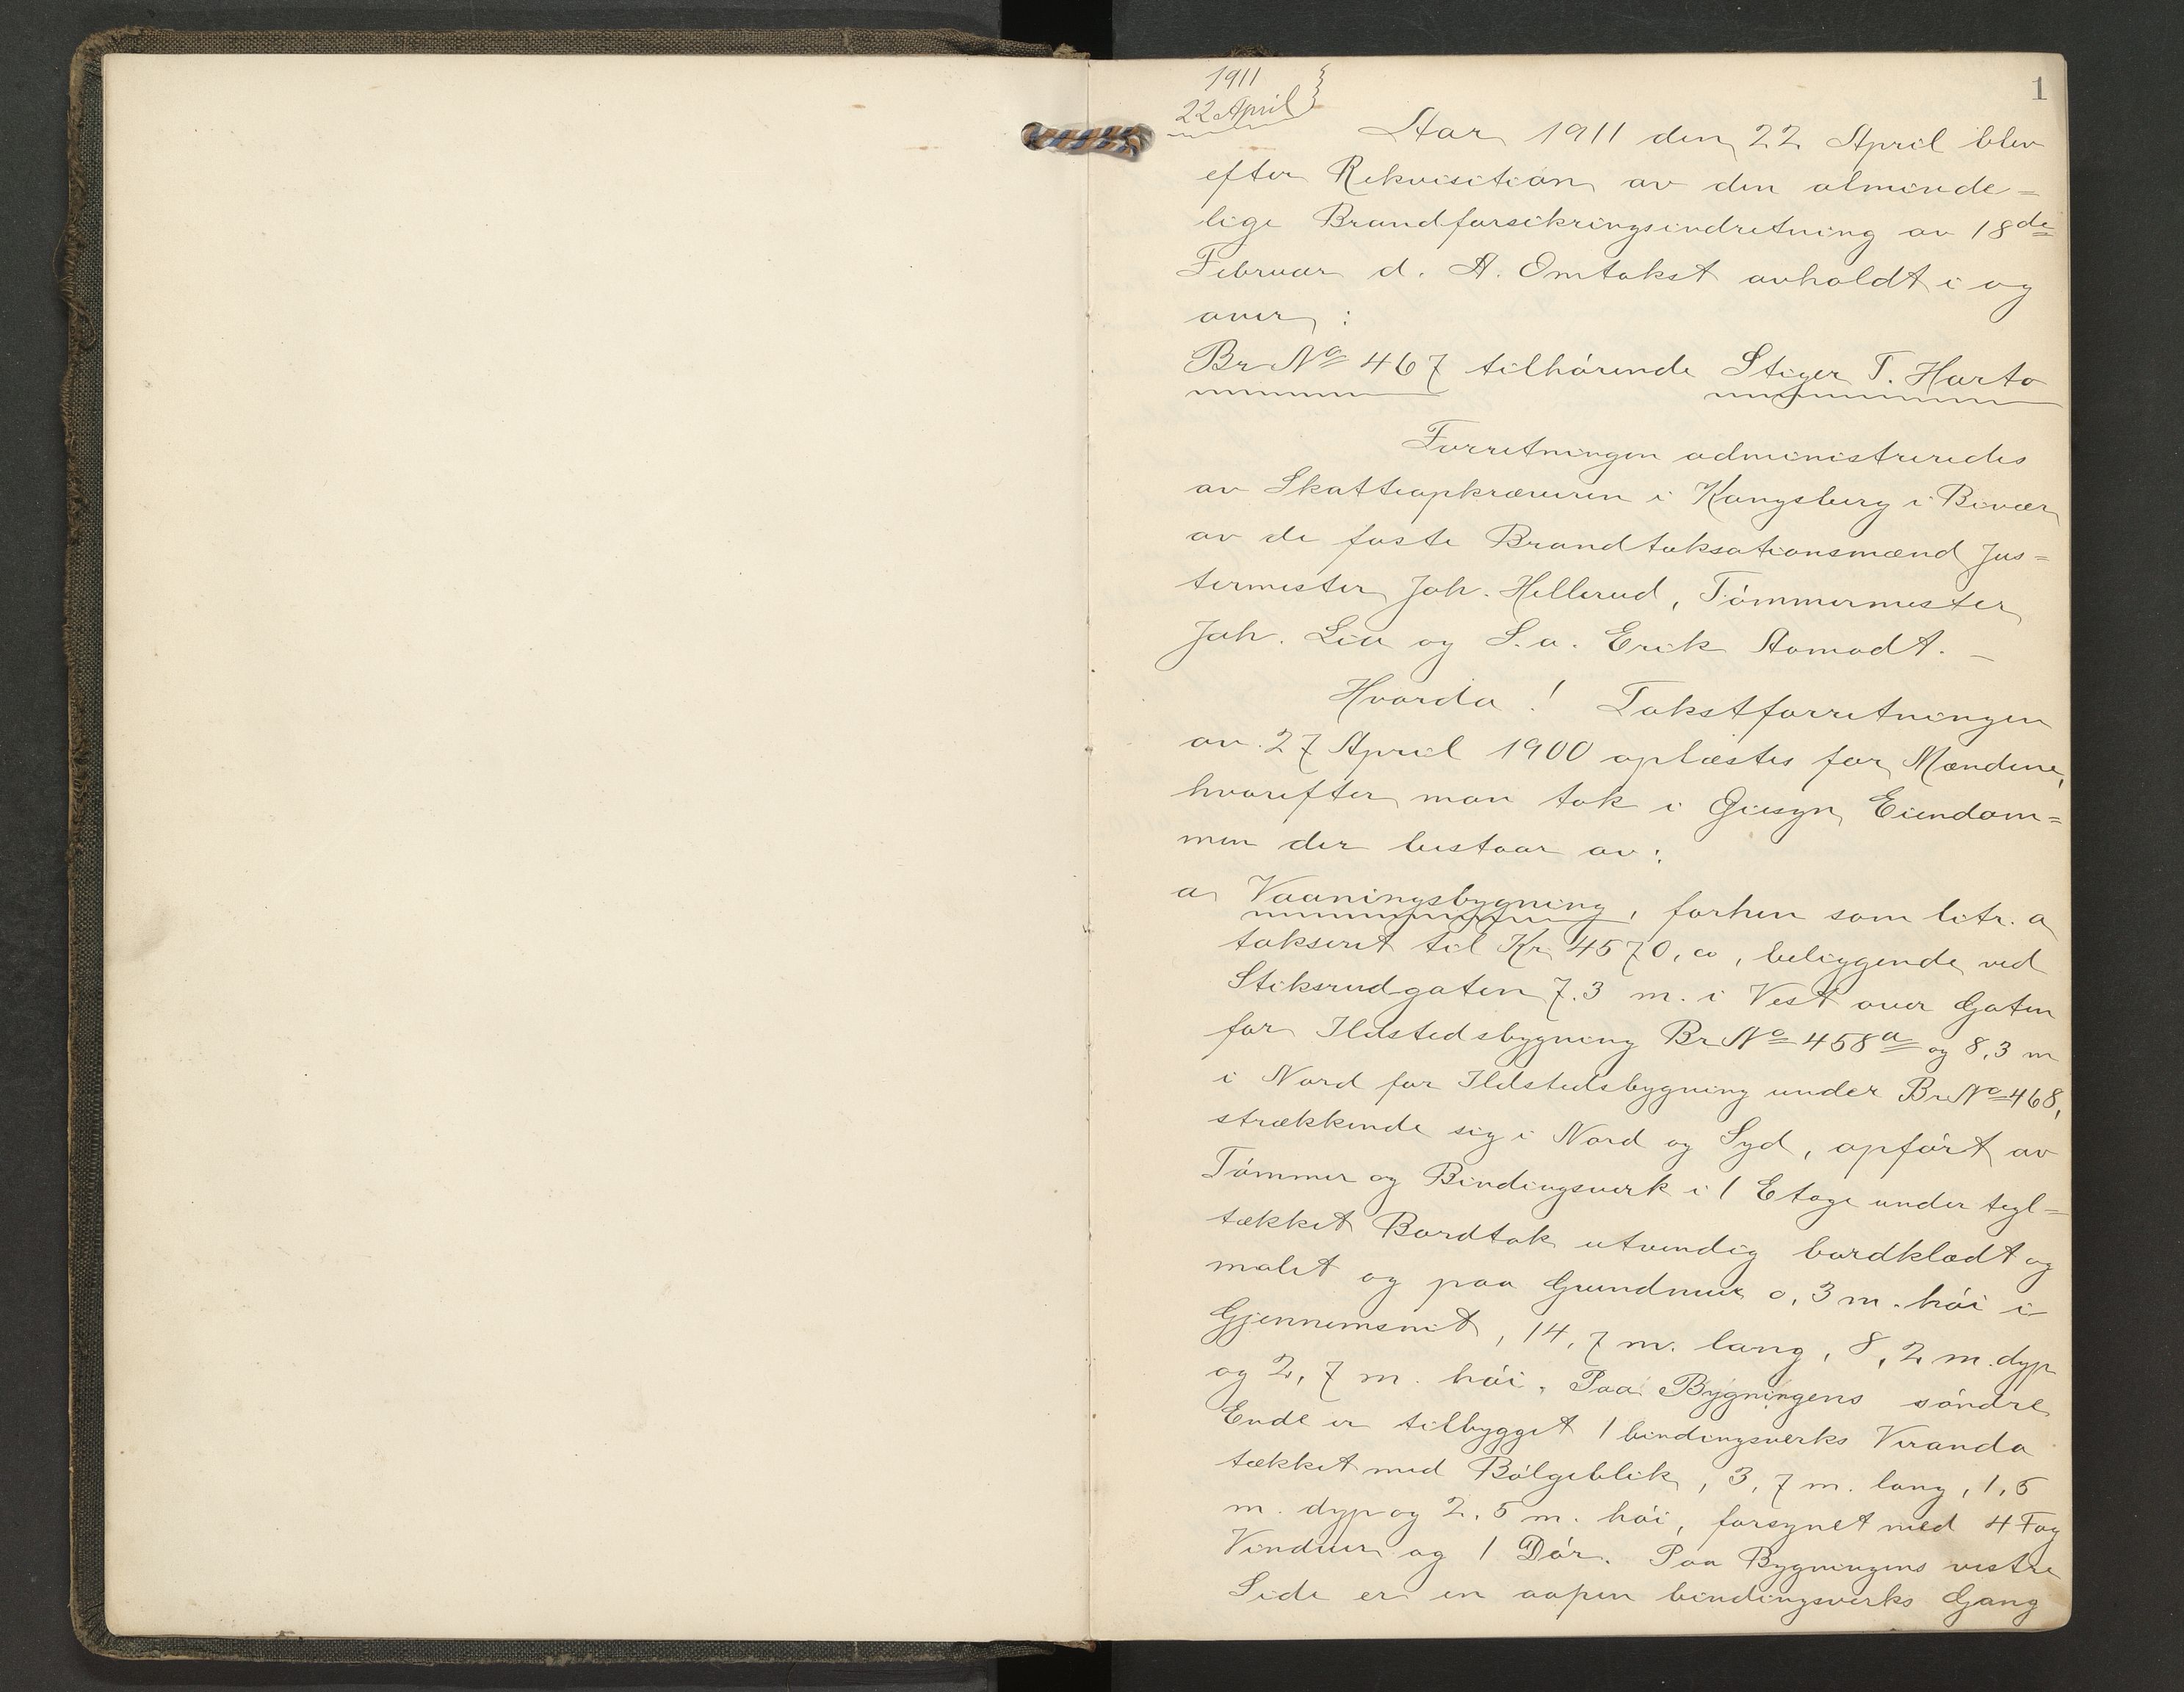 1
1911
22 April
Aar 1911 den 22 April blev
efter Rekvisition av den alminde=
lige Brandforsikringsindretning av 18de
Februar d. A. Omtakst avholdt i og
over :
Br No 467 tilhørende Stiger T. Harto
Forretningen administreredes
av Skatteopkræveren i Kongsberg i Bivær
av de faste Brandtaksationsmænd Jus=
termester Joh. Hellerud, Tømmermester
Joh. Lia og S. a. Erik Aamodt. —
Hvorda ! Takstforretningen
av 27 April 1900 oplæstes for Mændene,
hvorefter man tok i Øiesyn Eiendom=
men der bestaar av :
a Vaaningsbygning, forhen som litr. a
taksert til Kr 4570,00, beliggende ved
Stiksrudgaten 7.3 m. i Vest over Gaten
for Ildstedsbygning Br No 458 a og 8,3 m
i Nord for Ildstedsbygning under Br No 468,
strækkende sig i Nord og Syd, opført av
Tømmer og Bindingsverk i 1 Etage under tegl=
tækket Bordtak utvendig bordklædt og
malet og paa Grundmur 0,3 m. høi i
Gjennemsnit, 14,7 m. lang, 8,2 m. dyp
og 2,7 m. høi. Paa Bygningens søndre
Ende er tilbygget 1 bindingsverks Veranda
tækket med Bølgeblik, 3,7 m. lang, 1,5
m. dyp og 2,5 m. høi, forsynet med 4 Fag
Vinduer og 1 Dør. Paa Bygningens vestre
Side er en aapen bindingsverks Gang